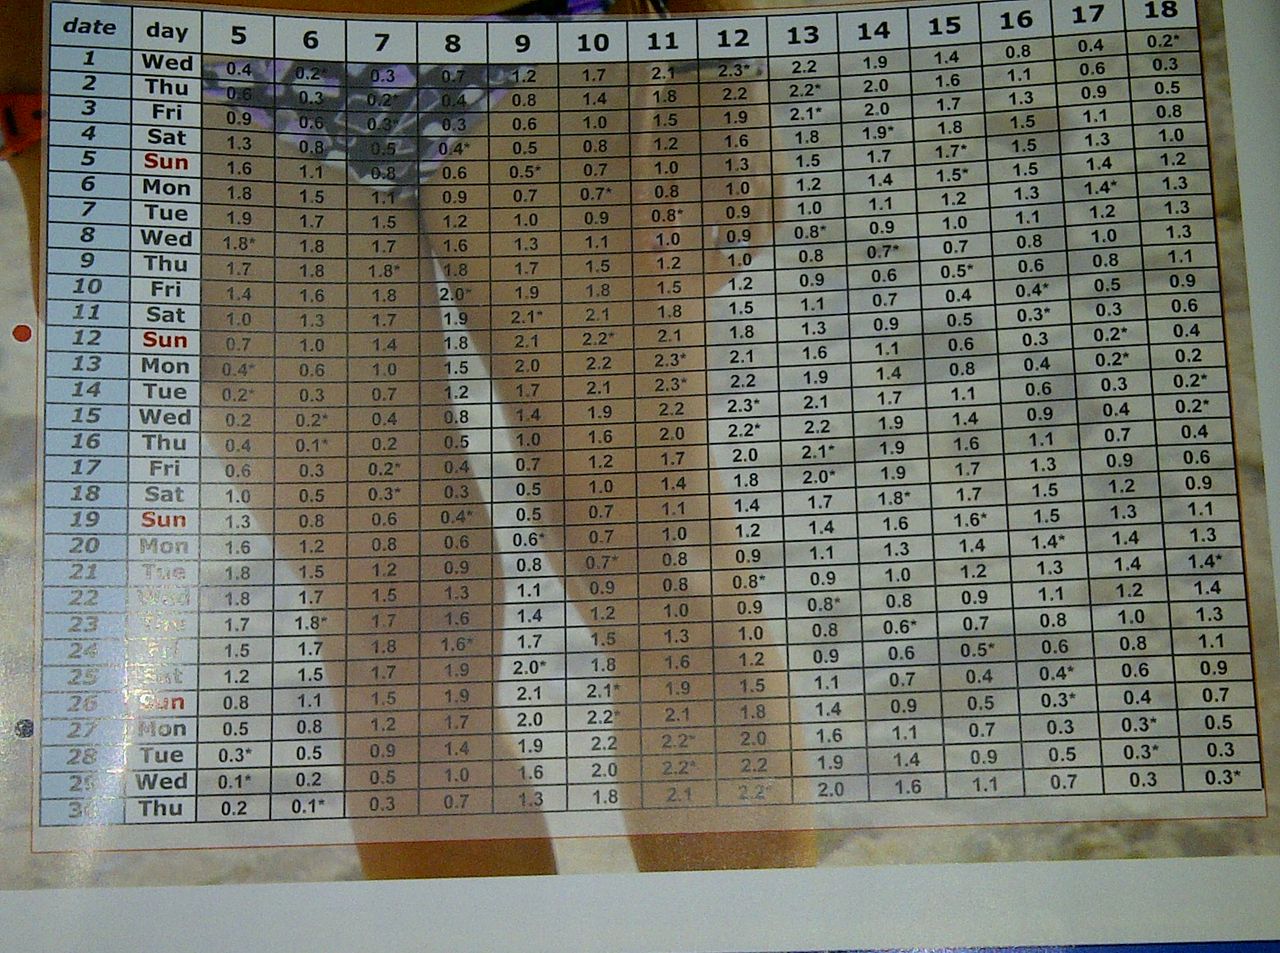 date day 5 6 7 8 9 10 11 12 13 14 15 16 17 18
1 Wed 0.4 0.2* 0.3 0.7 1.2 1.7 2.1 2.3* 2.2 1.9 1.4 0.8 0.4 0.2*
2 Thu 0.6 0.3 0.2* 0.4 0.8 1.4 1.8 2.2 2.2* 2.0 1.6 1.1 0.6 0.3
3 Fri 0.9 0.6 0.3* 0.3 0.6 1.0 1.5 1.9 2.1* 2.0 1.7 1.3 0.9 0.5
4 Sat 1.3 0.8 0.5 0.4* 0.5 0.8 1.2 1.6 1.8 1.9* 1.8 1.5 1.1 0.8
5 Sun 1.6 1.1 0.8 0.6 0.5* 0.7 1.0 1.3 1.5 1.7 1.7* 1.5 1.3 1.0
6 Mon 1.8 1.5 1.1 0.9 0.7 0.7* 0.8 1.0 1.2 1.4 1.5* 1.5 1.4 1.2
7 Tue 1.9 1.7 1.5 1.2 1.0 0.9 0.8* 0.9 1.0 1.1 1.2 1.3 1.4* 1.3
8 Wed 1.8* 1.8 1.7 1.6 1.3 1.1 1.0 0.9 0.8* 0.9 1.0 1.1 1.2 1.3
9 Thu 1.7 1.8 1.8* 1.8 1.7 1.5 1.2 1.0 0.8 0.7* 0.7 0.8 1.0 1.3
10 Fri 1.4 1.6 1.8 2.0* 1.9 1.8 1.5 1.2 0.9 0.6 0.5* 0.6 0.8 1.1
11 Sat 1.0 1.3 1.7 1.9 2.1* 2.1 1.8 1.5 1.1 0.7 0.4 0.4* 0.5 0.9
12 Sun 0.7 1.0 1.4 1.8 2.1 2.2* 2.1 1.8 1.3 0.9 0.5 0.3* 0.3 0.6
13 Mon 0.4* 0.6 1.0 1.5 2.0 2.2 2.3* 2.1 1.6 1.1 0.6 0.3 0.2* 0.4
14 Tue 0.2* 0.3 0.7 1.2 1.7 2.1 2.3* 2.2 1.9 1.4 0.8 0.4 0.2* 0.2
15 Wed 0.2 0.2* 0.4 0.8 1.4 1.9 2.2 2.3* 2.1 1.7 1.1 0.6 0.3 0.2*
16 Thu 0.4 0.1* 0.2 0.5 1.0 1.6 2.0 2.2* 2.2 1.9 1.4 0.9 0.4 0.2*
17 Fri 0.6 0.3 0.2* 0.4 0.7 1.2 1.7 2.0 2.1* 1.9 1.6 1.1 0.7 0.4
18 Sat 1.0 0.5 0.3* 0.3 0.5 1.0 1.4 1.8 2.0* 1.9 1.7 1.3 0.9 0.6
19 Sun 1.3 0.8 0.6 0.4* 0.5 0.7 1.1 1.4 1.7 1.8* 1.7 1.5 1.2 0.9
20 Mon 1.6 1.2 0.8 0.6 0.6* 0.7 1.0 1.2 1.4 1.6 1.6* 1.5 1.3 1.1
21 Tue 1.8 1.5 1.2 0.9 0.8 0.7* 0.8 0.9 1.1 1.3 1.4 1.4* 1.4 1.3
22 Wed 1.8 1.7 1.5 1.3 1.1 0.9 0.8 0.8* 0.9 1.0 1.2 1.3 1.4 1.4*
23 1.7 1.8* 1.7 1.6 1.4 1.2 1.0 0.9 0.8* 0.8 0.9 1.1 1.2 1.4
24 Fri 1.5 1.7 1.8 1.6* 1.7 1.5 1.3 1.0 0.8 0.6* 0.7 0.8 1.0 1.3
25 Sat 1.2 1.5 1.7 1.9 2.0* 1.8 1.6 1.2 0.9 0.6 0.5* 0.6 0.8 1.1
26 Sun 0.8 1.1 1.5 1.9 2.1 2.1* 1.9 1.5 1.1 0.7 0.4 0.4* 0.6 0.9
27 Mon 0.5 0.8 1.2 1.7 2.0 2.2* 2.1 1.8 1.4 0.9 0.5 0.3* 0.4 0.7
28 Tue 0.3* 0.5 0.9 1.4 1.9 2.2 2.2* 2.0 1.6 1.1 0.7 0.3 0.3* 0.5
29 Wed 0.1* 0.2 0.5 1.0 1.6 2.0 2.2* 2.2 1.9 1.4 0.9 0.5 0.3* 0.3
30 Thu 0.2 0.1* 0.3 0.7 1.3 1.8 2.1 2.2* 2.0 1.6 1.1 0.7 0.3 0.3*